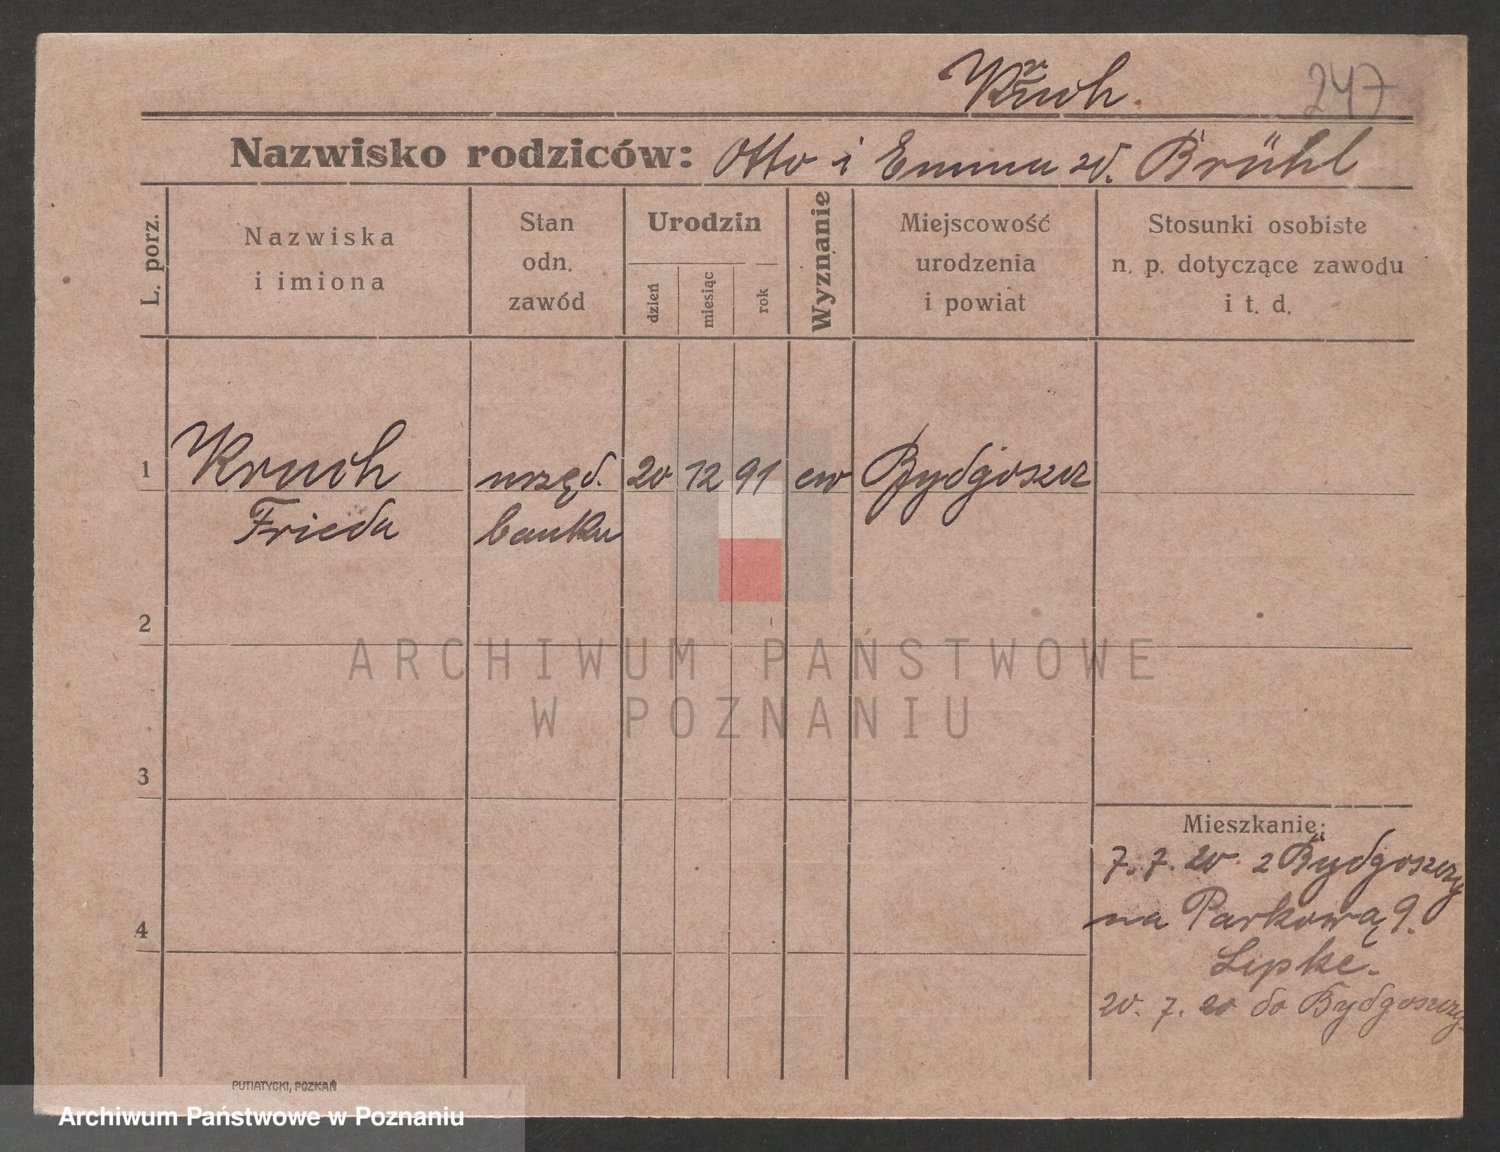 Kruch.
247
Nazwisko rodziców: Otto i Emma zd. Brühl
L. porz.
Nazwiska
i imiona
Stan
odn.
zawód
Urodzin
dzień
miesiąc
rok
Wyznanie
Miejscowość
urodzenia
i powiat
Stosunki osobiste
n. p. dotyczące zawodu
i t. d.
1 Kruch urzęd. 20 12 91 ew Bydgoszcz
Frieda banku
2
ARCHIWUM PAŃSTWOWE
W POZNANIU
3
Mieszkanie:
7. 7. 20 z Bydgoszczy
na Parkową 9.
4
Lipke.
20. 7. 20 do Bydgoszczy
PUTIATYCKI, POZNAŃ
Archiwum Państwowe w Poznaniu